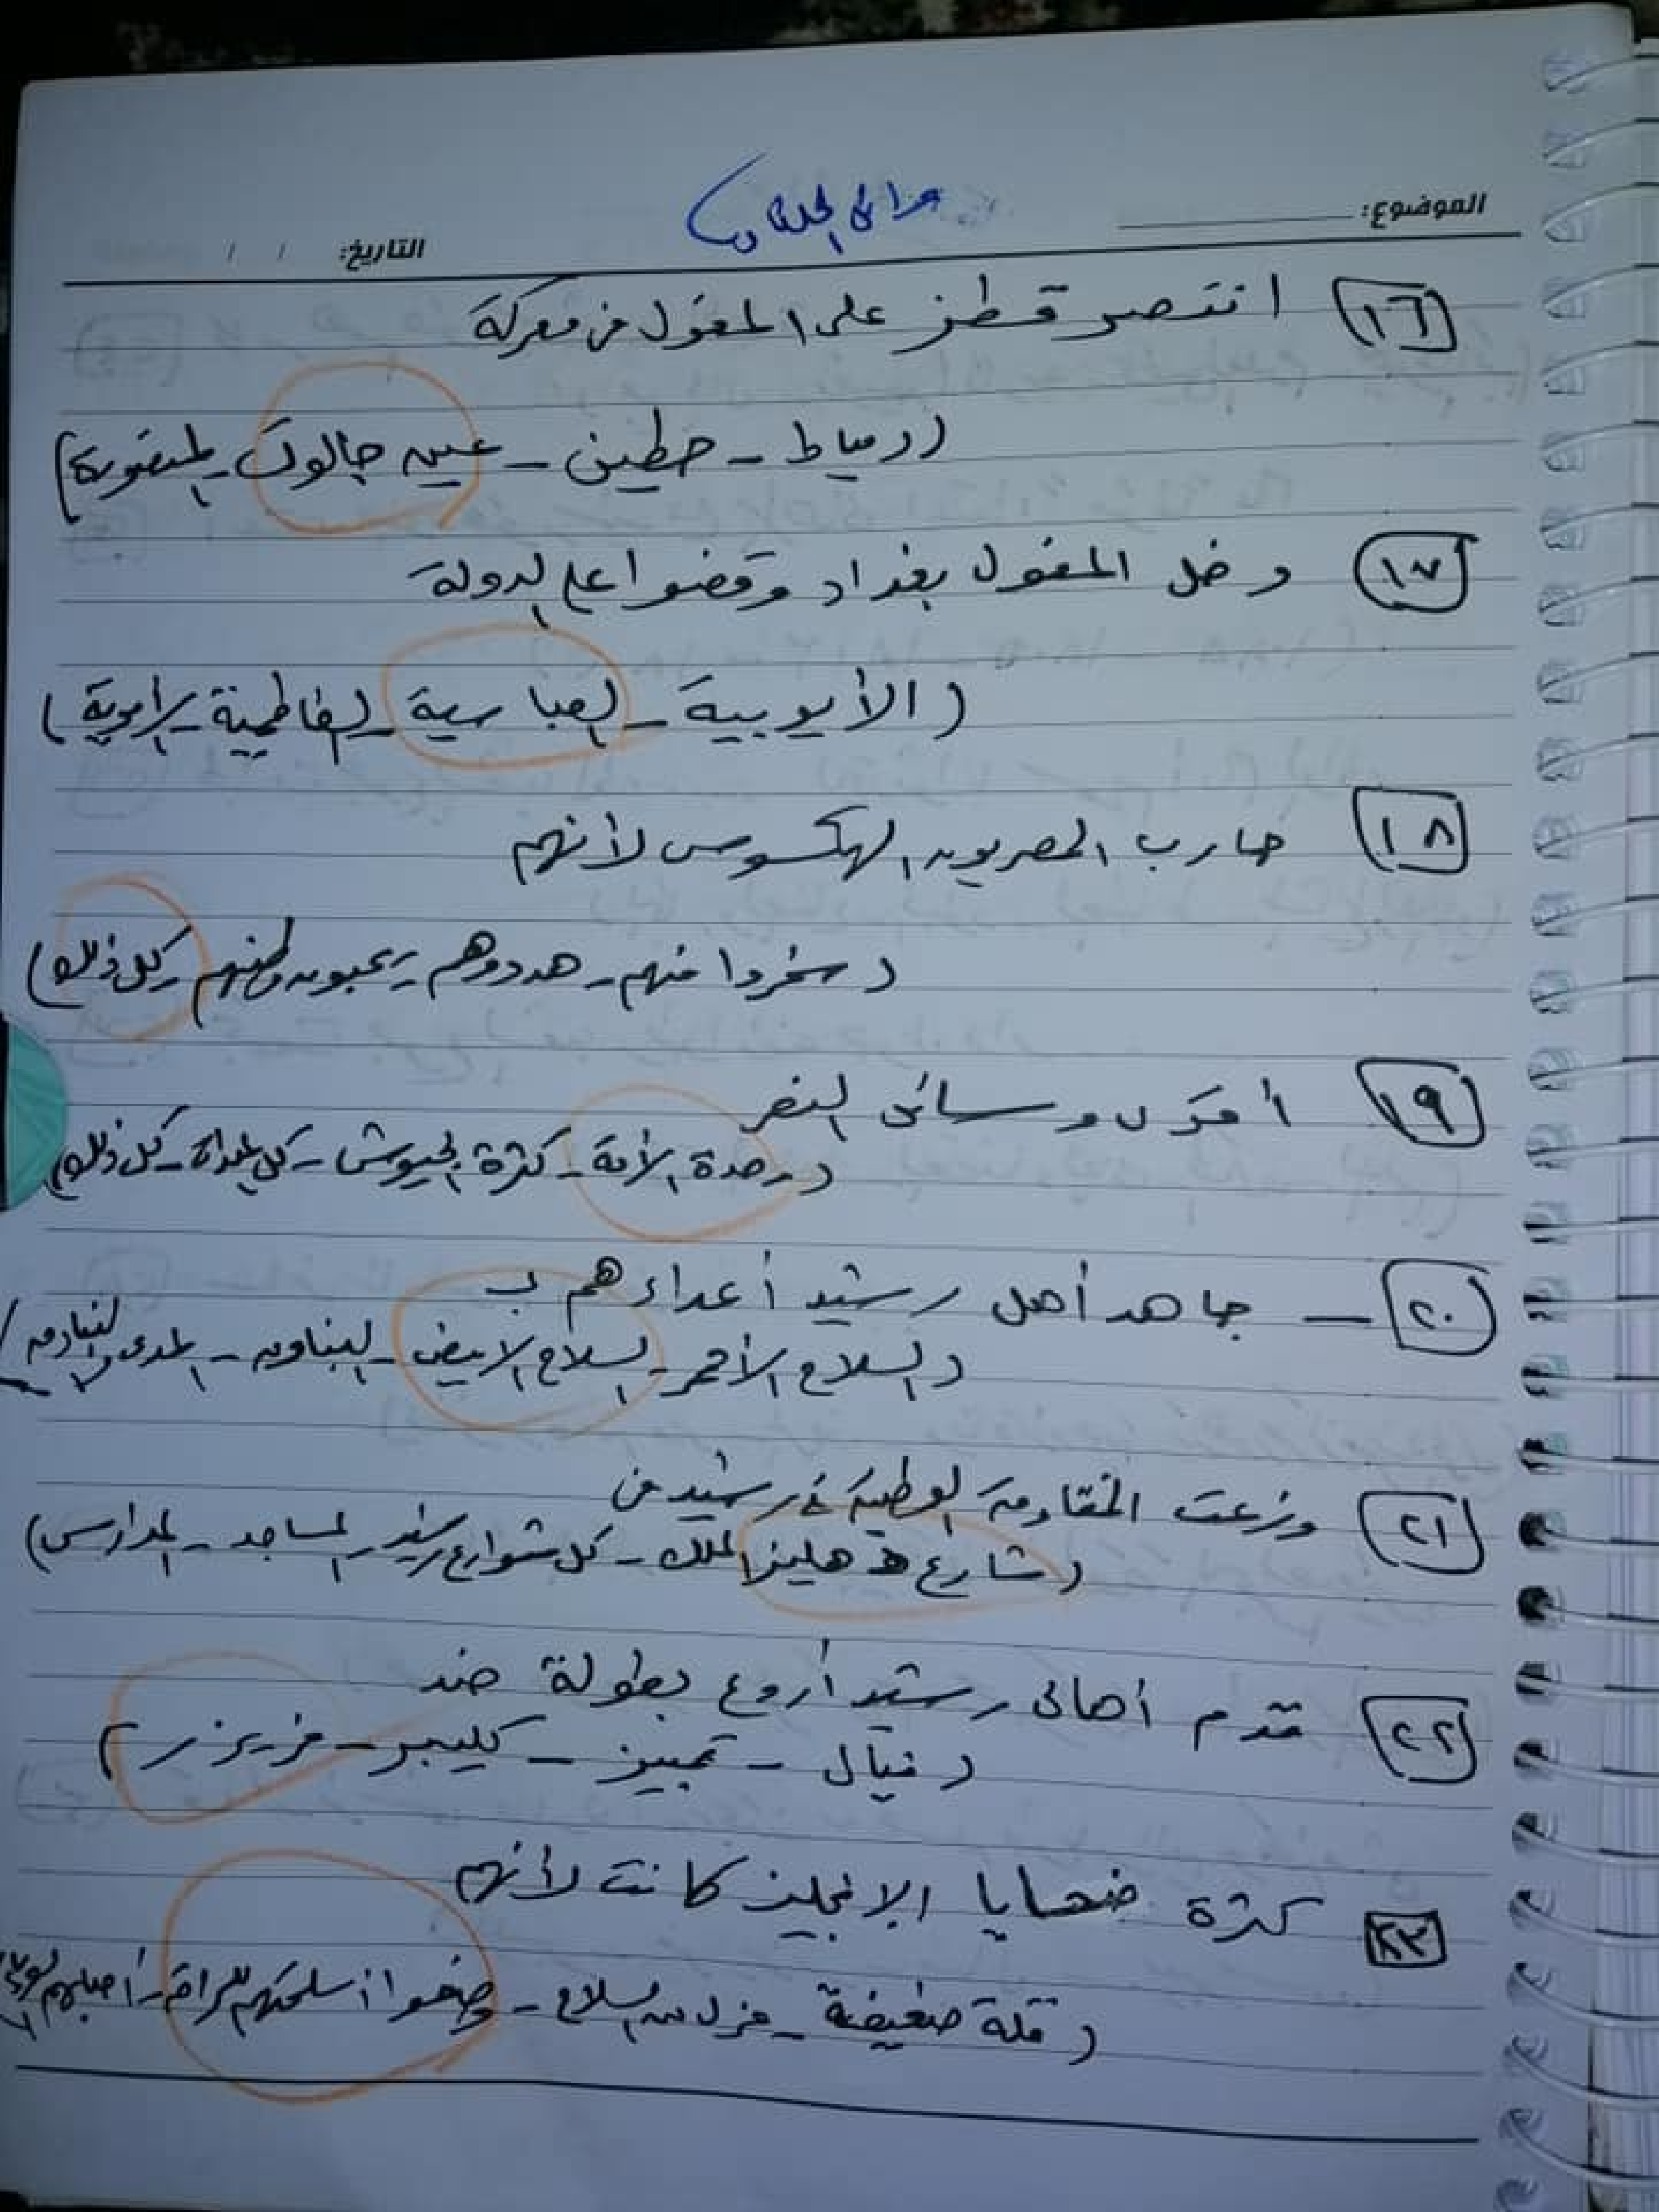 الموضوع:
التاريخ: / /
١٦ انتصر قطز على المغول في معركة
(دمياط - حطين - عين جالوت - المنصورة)
١٧ دخل المغول بغداد وقضوا على الدولة
(الأيوبية - العباسية - الفاطمية - الأموية)
١٨ حارب المصريون الهكسوس لأنهم
(سخروا منهم - هددوهم - يحبون وطنهم - كل ذلك)
١٩ أقوى وسائل النصر
(وحدة الأمة - كثرة الجيوش - كل ذلك)
٢٠ - جاهد أهل رشيد أعداءهم ب
(السلاح الأحمر - السلاح الأبيض - البنادق - المدى)
٢١ وزعت المقاومة الوطنية في رشيد في
(شارع دهليز الملك - كل شوارع رشيد - المساجد - المدارس)
٢٢ قدم أهالى رشيد أروع بطولة ضد
(نيال - قمبيز - كليبر - فريزر)
٢٣ كثرة ضحايا الإنجليز كانت لأنهم
(قلة ضعيفة - عزل من السلاح - وضعوا أسلحتهم للراحة - أصابهم)